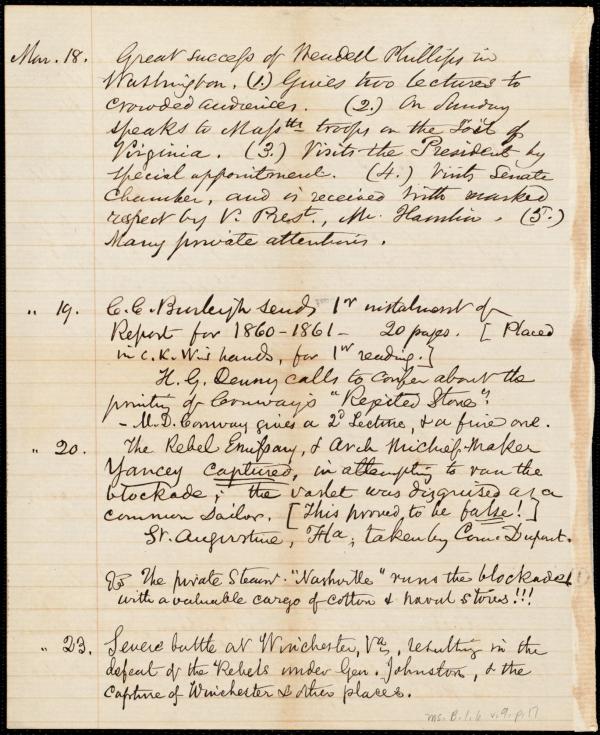 Mar. 18. Great success of Wendell Phillips in
Washington. (1.) Gives two lectures to
crowded audiences. (2.) On Sunday
speaks to Masstts troops on the soil of
Virginia. (3.) Visits the President by
special appointment. (4.) Visits Senate
Chamber, and is received with marked
respect by V. Prest., Mr. Hamlin. (5.)
Many private attentions.
" 19. C. C. Burleigh sends 1st instalment of
Report for 1860-1861 - 20 pages. [Placed
in C. K. W's hands, for 1st reading.]
H. G. Denny calls to confer about the
printing of Conway's "Rejected Stone".
- M. D. Conway gives a 2d Lecture, & a fine one.
" 20. The Rebel Emissary, & Arch Mischief-Maker
Yancey captured, in attempting to run the
blockade; the varlet was disguised as a
common sailor. [This proved to be false!]
St. Augustine, Fla, taken by Com. Dupont.
The private Steamr. "Nashville" runs the blockade
with a valuable cargo of cotton & naval stores!!!
" 23. Severe battle at Winchester, Va, resulting in the
defeat of the Rebels under Gen. Johnston, & the
capture of Winchester & other places.
Ms. B.1.6 v.9, p.17